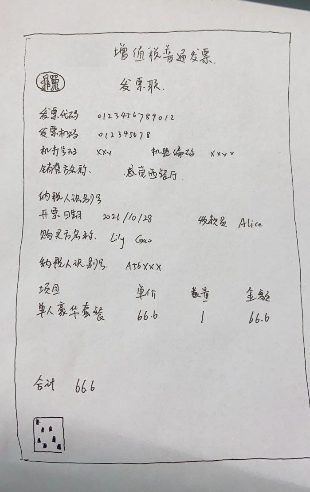 增值税普通发票
发票联
发票代码 0123456789012
发票号码 012345678
机打号码 xxx 机器编码 xxxx
销售方名称: 餐厅
纳税人识别号
开票日期 2021/10/28 收款员 Alice
购买方名称: Lily
纳税人识别号 A56XXX
项目 单价 数量 金额
单人豪华套装 66.6 1 66.6
合计 66.6